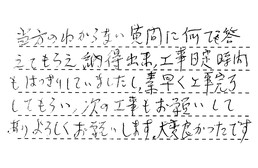 当方のわからない質問に何でも答
えてもらえ納得出来、工事日定時間
もはっきりしていましたし、素早く工事完了
してもらい、次の工事もお願いして
ありよろしくお願いします。大変良かったです